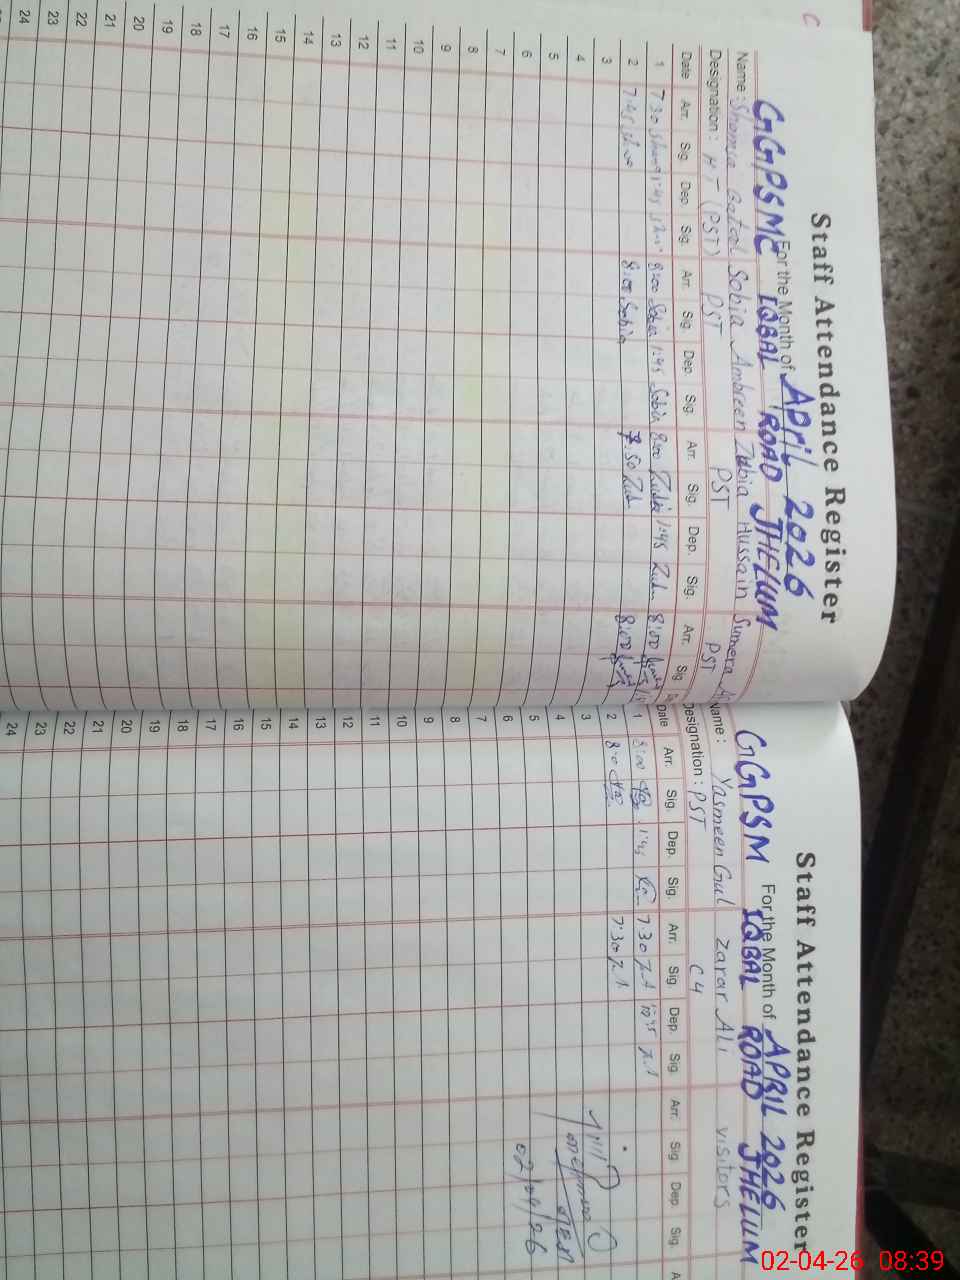 Staff Attendance Register
For the Month of April 2026
GGPSMC IQBAL ROAD JHELUM
Name: Shamia Batool Sobia Ambreen Zubia Hussain Sumera
Designation: HT (PST) PST PST PST
Date Arr. Sig. Dep. Sig. Arr. Sig. Dep. Sig. Arr. Sig. Dep. Sig. Arr. Sig
1 7:30 1:45 8:00 Sobia 1:45 Sobia 8:00 Zubia 1:45 8:00
2 7:45 8:00 Sobia 7:50 8:00
3
4
5
6
7
8
9
10
11
12
13
14
15
16
17
18
19
20
21
22
23
24
Staff Attendance Register
For the Month of APRIL 2026
GGPSM IQBAL ROAD JHELUM
Name: Yasmeen Gul Zarar Ali visitors
Designation: PST C4
Date Arr. Sig. Dep. Sig. Arr. Sig. Dep. Sig. Arr. Sig. Dep. Sig. A
1 8:00 1:45 7:30 1:45
2 8:0 7:30
3
4
5
6
7
8
9
10
11
12
13
14
15
16
17
18
19
20
21
22
23
24
AEO
02/04/26
02-04-26 08:39